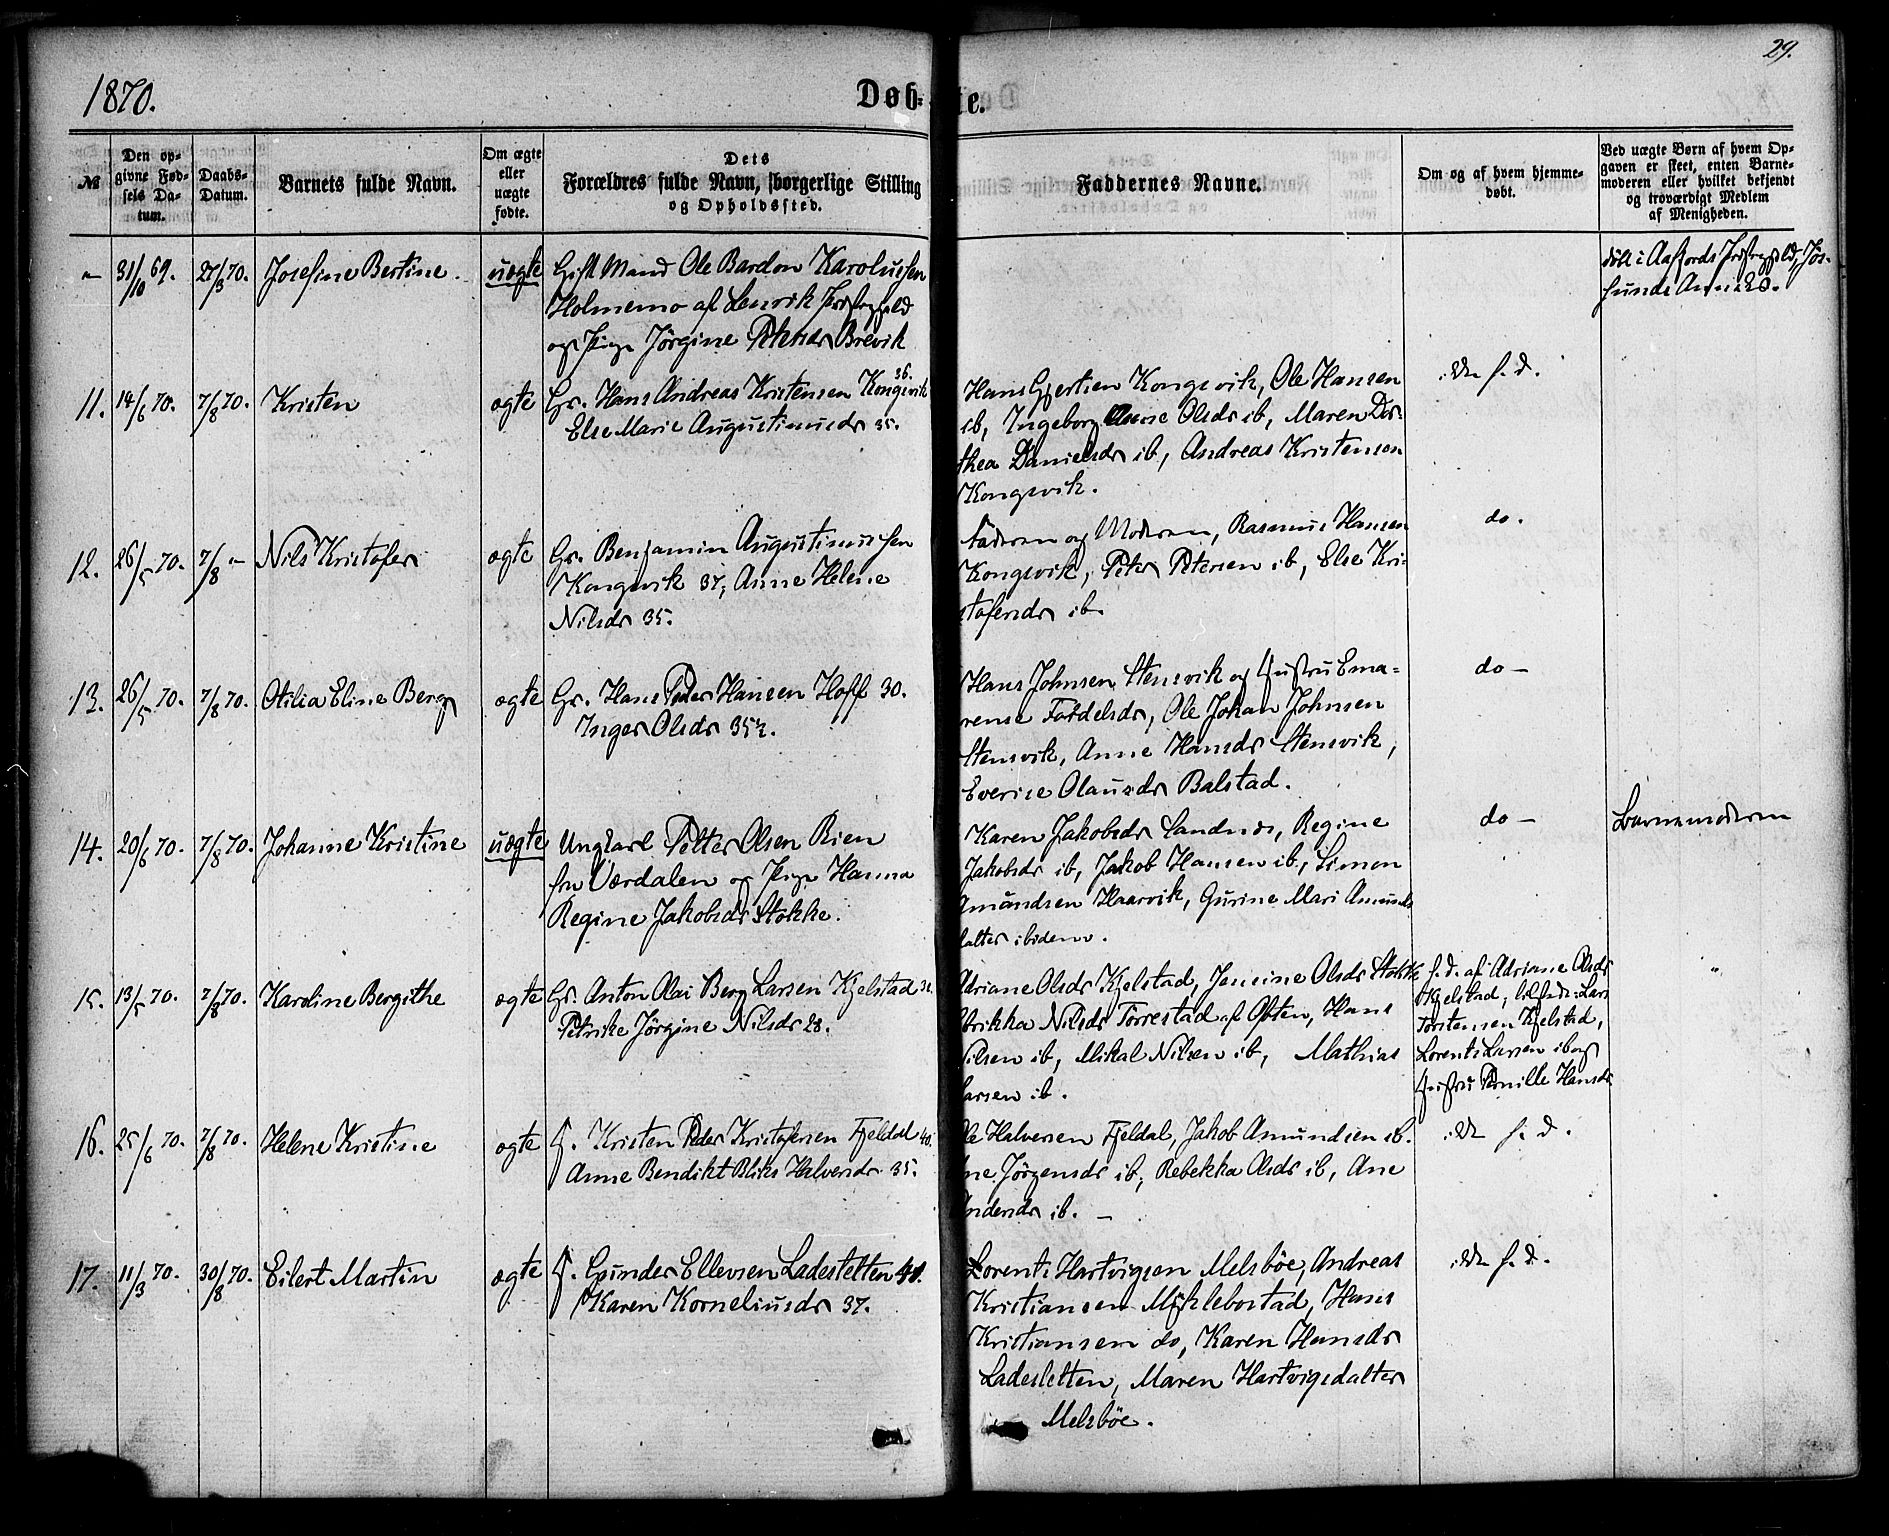 29.
1870.
Døb-te.
№
Den op-
givne Fød-
sels Da-
tum.
Daabs-
Datum.
Barnets fulde Navn.
Om ægte
eller
uægte
fødte.
Dets
Forældres fulde Navn, borgerlige Stilling
og Opholdssted.
Faddernes Navne.
Om og af hvem hjemme-
døbt.
Ved uægte Børn af hvem Op-
gaven er skeet, enten Barne-
moderen eller hvilket bekjendt
og troværdigt Medlem
af Menigheden.
" 31/10 69. 27/3 70. Josefine Bertine. uægte Gift Mand Ole Bardon Karolussen
Holmemo af Lenvik Præstegjeld
og Pige Jörgine Petersdr Brevik
36.
döbt i Aafjords Præstegjeld, Jös-
sunds Annex.
11. 14/6 70. 7/8 70. Kristen ægte Gr. Hans Andreas Kristensen Kongsvik
Else Marie Augustinusdr 35.
Hans Gjertsen Kongsvik, Ole Hansen
ib, Ingeborg Anne Olsdr ib, Maren Dor-
thea Danielsdr ib, Andreas Kristensen
Kongsvik.
ikke h. d.
12. 26/5 70. 7/8 " Nils Kristofer ægte Gr. Benjamin Augustinussen
Kongsvik 37, Anne Helene
Nilsdr 35.
Faderen og Moderen, Rasmus Hansen
Kongsvik, Peter Petersen ib, Else Kri-
stofersdr ib.
do.
13. 26/5 70. 7/8 70. Otilia Eline Berg ægte Gr. Hans Peder Hansen Hoff 30.
Inger Olsdr 35½.
Hans Johnsen Stensvik og Hustru Ema-
rense Tordelsdr, Ole Johan Johnsen
Stensvik, Anne Hansdr Stensvik,
Everise Olausdr Balstad.
do —
14. 20/6 70. 7/8 70. Johanne Kristine uægte Ungkarl Petter Olsen Rien
fra Værdalen og Pige Hanna
Regine Jakobsdr Stokke.
Karen Jakobsdr Sandnes, Regine
Jakobsdr ib, Jakob Hansen ib, Simon
Amundsen Haarvik, Gurine Mari Amunds
datter ibidem.
do —
Barnemoderen
15. 13/5 70. 7/8 70. Karoline Bergithe ægte Gr. Anton Olai Berg Larsen Kjelstad 31.
Petrike Jörgine Nilsdr 28.
Adriane Olsdr Kjelstad, Jensine Olsdr Stokke
Nilsdr Torrestad af Ofoten, Hans
Nilsen ib, Mikal Nilsen ib, Mathias
Larsen ib.
h. d. af Adriane Olsdr
Kjelstad; tilstede: Lars
Torstensen Kjelstad,
Lorents Larsen ib og
Hustru Pernille Hansdr
"
16. 25/6 70. 7/8 70. Helene Kristine ægte I. Kristen Peder Kristofersen Fjeldal 40.
Anne Bendikt Bliks Halvorsdr 35.
Ole Halvorsen Fjeldal, Jakob Amundsen ib.
Ane Jörgensdr ib, Rebekka Olsdr ib, Ane
Andersdr ib. —
ikke h. d.
17. 11/3 70. 30/8 70. Eilert Martin ægte I. Gunder Ellevsen Ladesletten 41.
Karen Korneliusdr 37.
Lorents Hartvigsen Melsböe, Andreas
Kristiansen Myklebostad, Hans
Kristiansen do, Karen Hansdr
Ladesletten, Maren Hartvigsdatter
Melsböe.
ikke h. d.